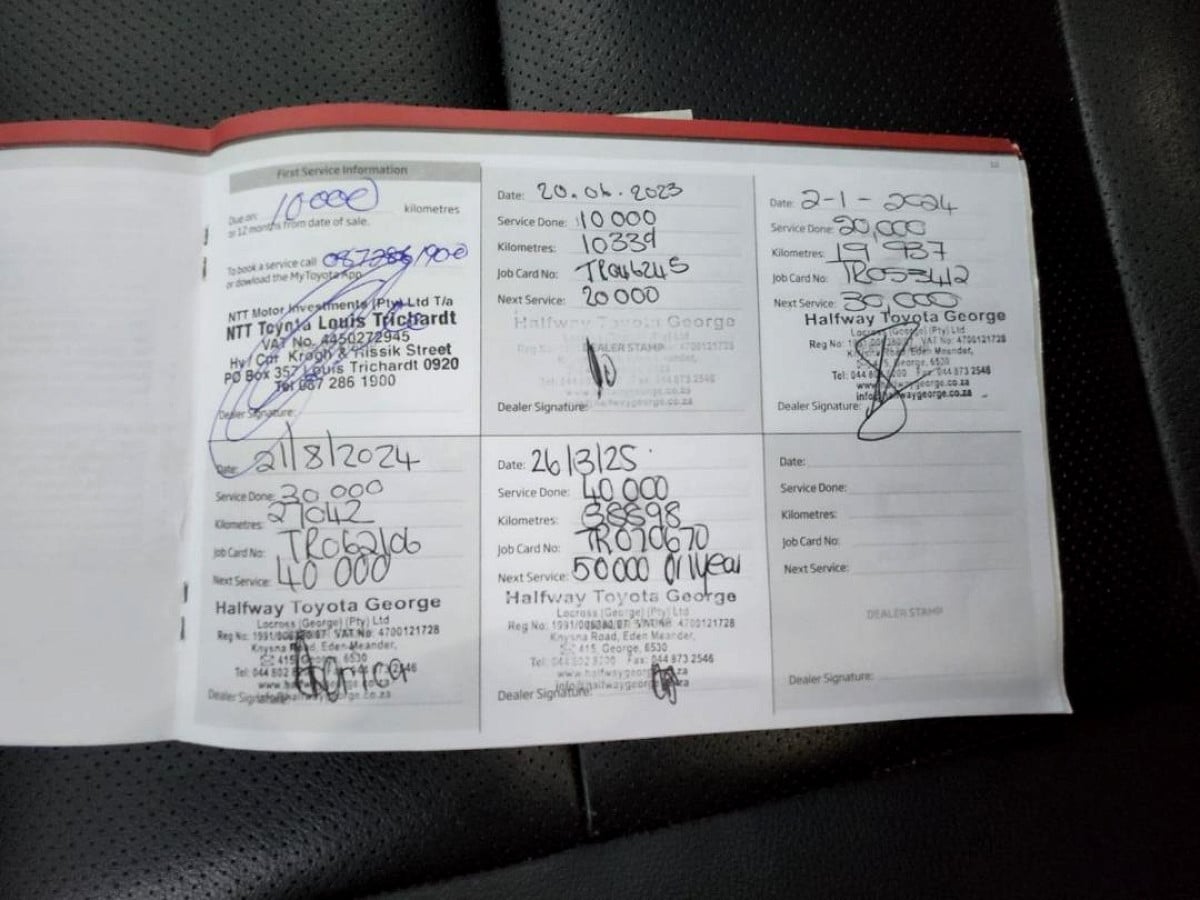 10
First Service Information
Due on: 10 000 kilometres
or 12 months from date of sale.
To book a service call 087286 1900
or dowload the MyToyota App
NTT Motor Investments (Pty) Ltd T/a
NTT Toyota Louis Trichardt
VAT No. 4450272945
Hv/ Cnr Krogh & Rissik Street
PO Box 357 Louis Trichardt 0920
Tel 087 286 1900
Dealer Signature:
Date: 20.06.2023
Service Done: 10 000
Kilometres: 10339
Job Card No: TR046245
Next Service: 20 000
Halfway Toyota George
DEALER STAMP 4700121728
Tel: 044 873 2546
Dealer Signature:
Date: 2-1-2024
Service Done: 20,000
Kilometres: 19 937
Job Card No: TR053412
Next Service: 30,000
Halfway Toyota George
Locross (George) (Pty) Ltd
Reg No: VAT No: 4700121728
Road, Eden Meander,
George, 6530
Tel: 044 Fax: 044 873 2546
www.halfwaygeorge.co.za
info@halfwaygeorge.co.za
Dealer Signature:
Date: 21/8/2024
Service Done: 30 000
Kilometres: 27042
Job Card No: TR062106
Next Service: 40 000
Halfway Toyota George
Locross (George) (Pty) Ltd
Reg No: VAT No: 4700121728
Knysna Road, Eden Meander,
415, George, 6530
Tel: 044 802 2546
Dealer Signature:
Date: 26/3/25
Service Done: 40 000
Kilometres: 38898
Job Card No: TR070670
Next Service: 50 000 or 1 year
Halfway Toyota George
Locross (George) (Pty) Ltd
Reg No: VAT No: 4700121728
Knysna Road, Eden Meander,
415, George, 6530
Tel: 044 802 Fax: 044 873 2546
www.halfwaygeorge.co.za
info@halfwaygeorge.co.za
Dealer Signature:
Date:
Service Done:
Kilometres:
Job Card No:
Next Service:
DEALER STAMP
Dealer Signature: